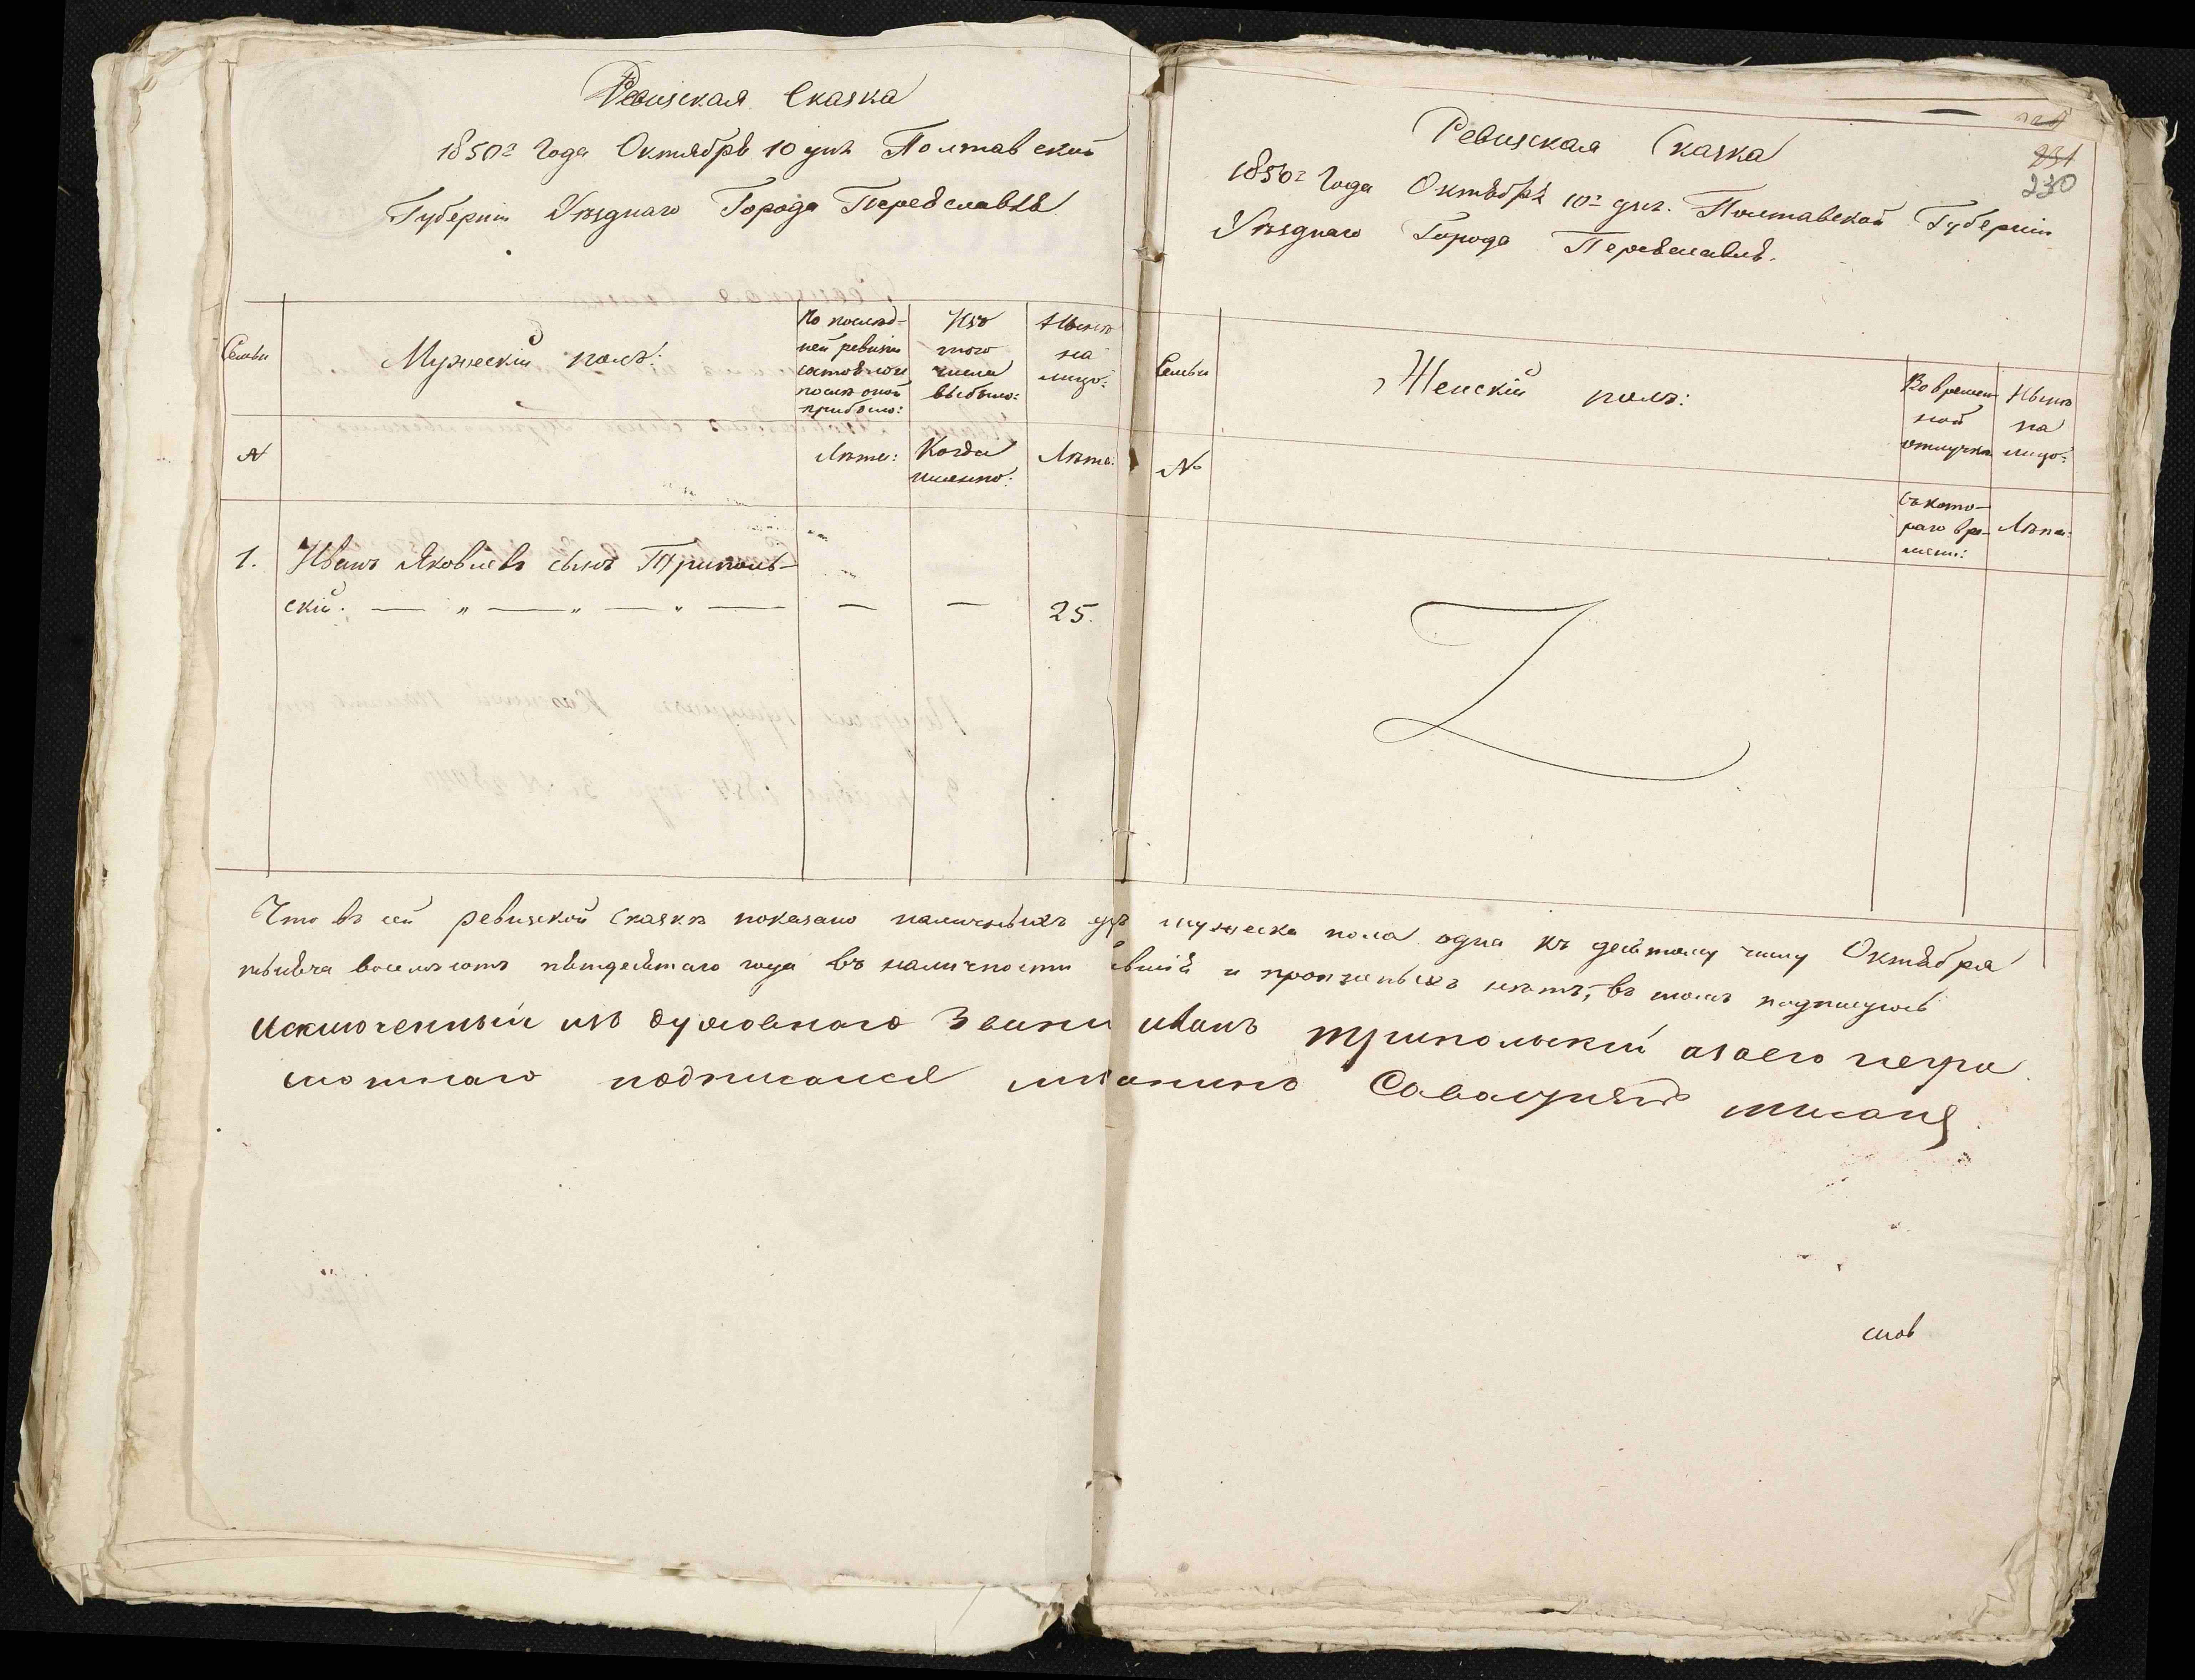 Ревизская Сказка
1850г Года Октября 10 дня Полтавской
Губерніи Уѣзднаго Города Переяславля
Семьи
Мужескій полъ:
По послѣд-
ней ревизіи
состояло и
послѣ оной
прибыло:
Изъ
того
числа
выбыло:
Нынѣ
на
лицо:
№
Лѣта:
Когда
именно:
Лѣта:
1. Иванъ Яковлевъ сынъ Триполь-
скій: — „ — „ — „ — — — 25.
Ревизская Сказка
231
230
1850г Года Октября 10г дня. Полтавской Губерніи
Уѣзднаго Города Переяславля.
Семьи
Женскій полъ:
Во времен
ной
отлучкѣ
Нынѣ
на
лицо:
№
Съ кото-
раго вре-
мени:
Лѣта:
Что въ сей ревизской сказкѣ показано наличныхъ душъ мужеска пола одна къ десятому числу Октября
тысяча восемьсотъ пятдесятаго года въ наличности и прописныхъ нѣтъ, въ томъ подпишусь
Исключенный изъ духовнаго Звания иванъ трипольский азаего негра
мотнаго подписался мѣщанинъ
слов